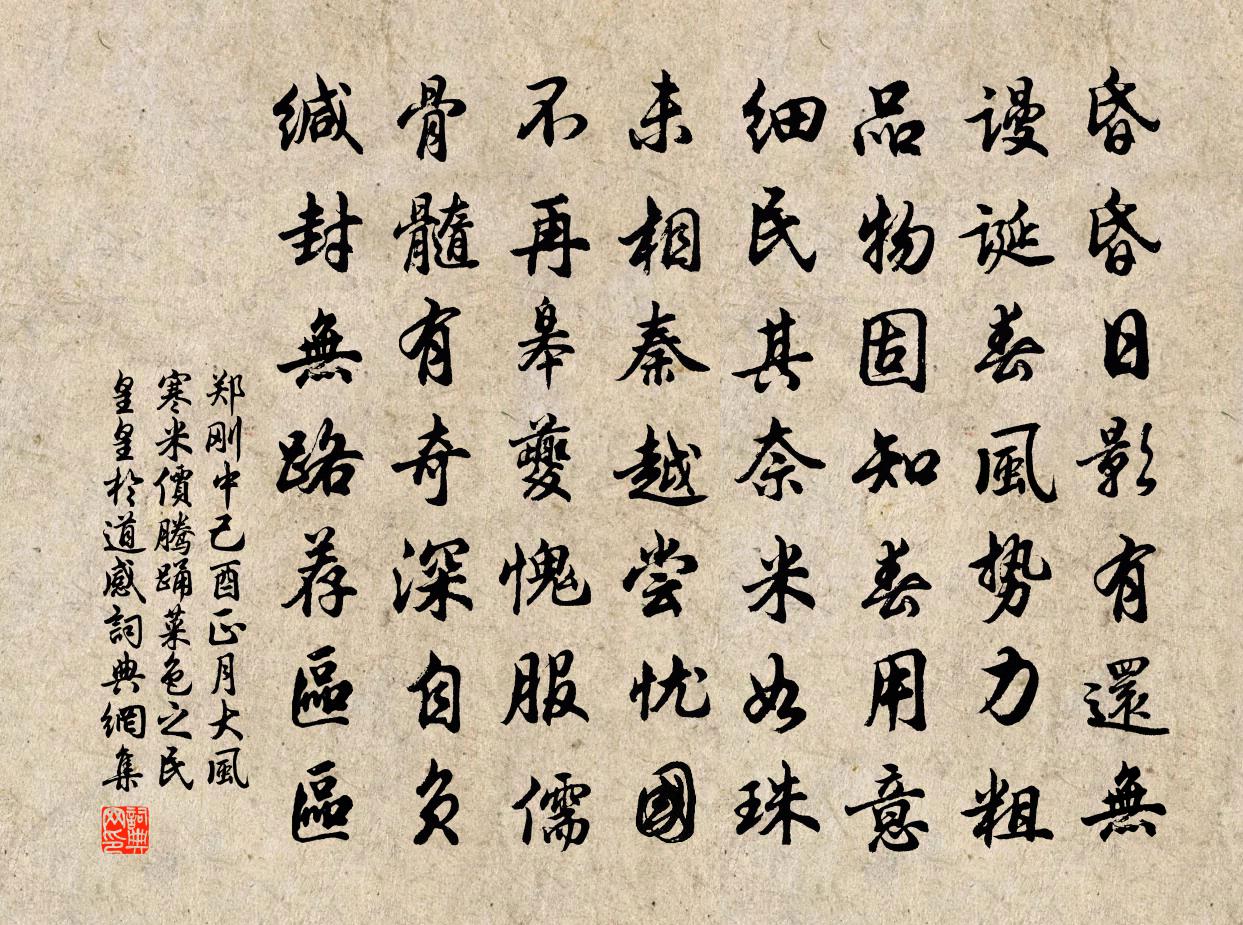 昏昏日影有還無
谩誕春風勢力粗
品物固知春用意
細民其奈米如珠
未相秦越尝忧國
不再皋夔愧服儒
骨髓有奇深自负
缄封無路荐區區
郑刚中己酉正月大風
寒米價騰踊菜色之民
皇皇於道感詞典網集
詞典
网印